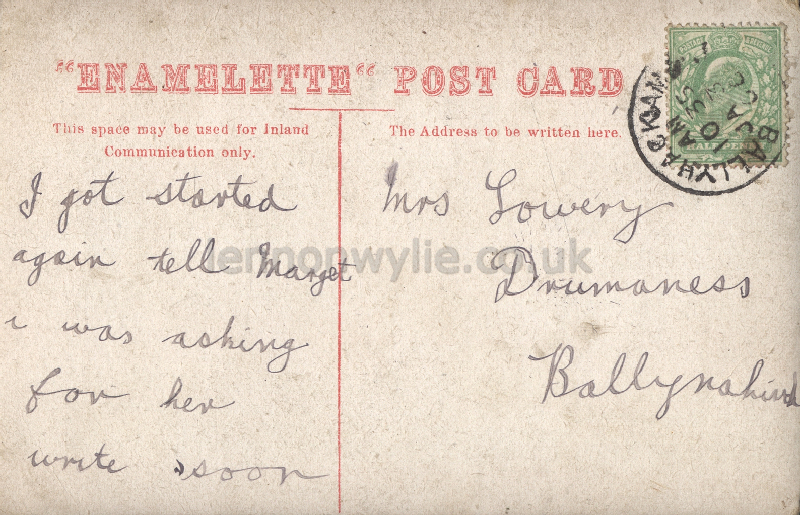 "ENAMELETTE" POST CARD
This space may be used for Inland
Communication only.
The Address to be written here.
I got started
again tell Marget
i was asking
for her
write soon
Mrs Lowery
Drumaness
Ballynahinch
lennonwylie.co.uk
POSTAGE
HALFPENNY
BALLYHACKAMORE